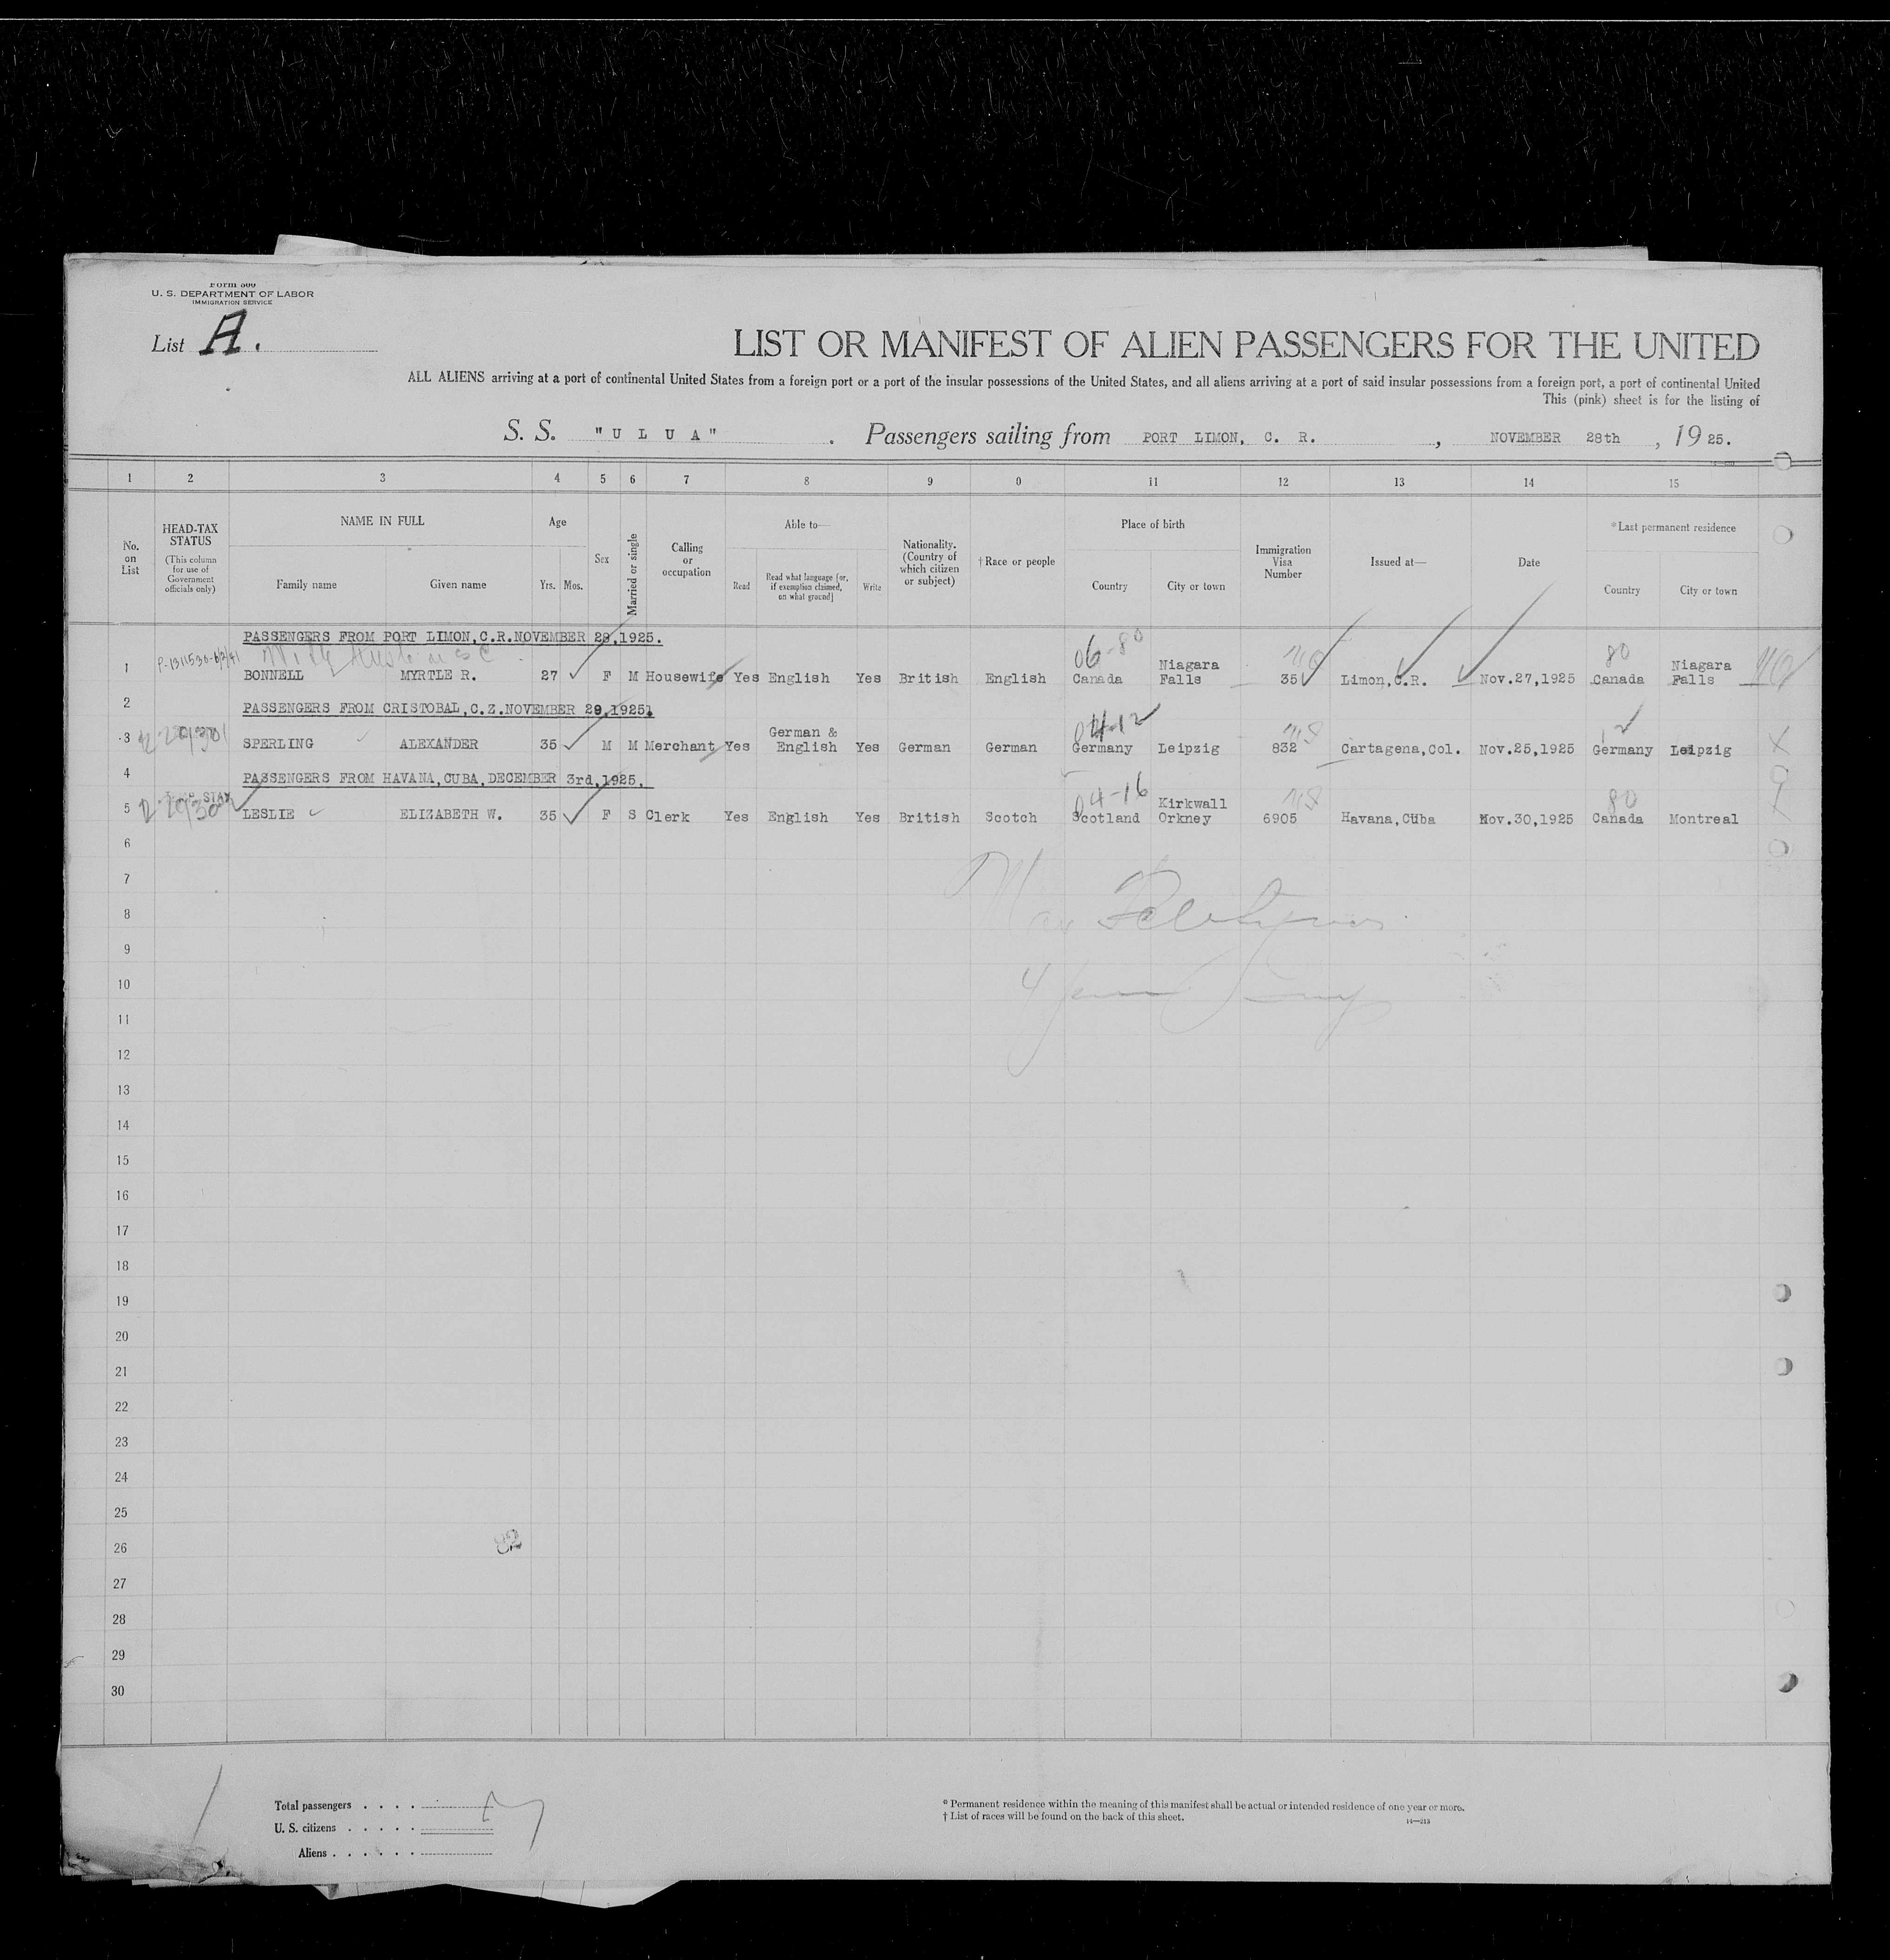 Form 500
U. S. DEPARTMENT OF LABOR
IMMIGRATION SERVICE
List A.
LIST OR MANIFEST OF ALIEN PASSENGERS FOR THE UNITED
ALL ALIENS arriving at a port of continental United States from a foreign port or a port of the insular possessions of the United States, and all aliens arriving at a port of said insular possessions from a foreign port, a port of continental United
This (pink) sheet is for the listing of
S. S. "U L U A" . Passengers sailing from PORT LIMON, C. R. , NOVEMBER 28th , 1925.
1 2 3 4 5 6 7 8 9 0 11 12 13 14 15
No. on List
HEAD-TAX STATUS (This column for use of Government officials only)
NAME IN FULL
Family name Given name
Age
Yrs. Mos.
Sex
Married or single
Calling or occupation
Able to—
Read
Read what language [or, if exemption claimed, on what ground]
Write
Nationality. (Country of which citizen or subject)
† Race or people
Place of birth
Country City or town
Immigration Visa Number
Issued at—
Date
* Last permanent residence
Country City or town
PASSENGERS FROM PORT LIMON,C.R.NOVEMBER 28,1925.
06-80 80
1 BONNELL MYRTLE R. 27 F M Housewife Yes English Yes British English Canada Niagara Falls 35 Limon,C.R. Nov.27,1925 Canada Niagara Falls
2 PASSENGERS FROM CRISTOBAL,C.Z.NOVEMBER 29,1925.
04-12
3 SPERLING ALEXANDER 35 M M Merchant Yes German & English Yes German German Germany Leipzig 832 Cartagena,Col. Nov.25,1925 Germany Leipzig
4 PASSENGERS FROM HAVANA,CUBA,DECEMBER 3rd,1925.
04-16 80
5 LESLIE ELIZABETH W. 35 F S Clerk Yes English Yes British Scotch Scotland Kirkwall Orkney 6905 Havana,Cuba Nov.30,1925 Canada Montreal
6
7
8
9
10
11
12
13
14
15
16
17
18
19
20
21
22
23
24
25
26
27
28
29
30
Total passengers . . . .
U. S. citizens . . . . .
Aliens . . . . . .
* Permanent residence within the meaning of this manifest shall be actual or intended residence of one year or more.
† List of races will be found on the back of this sheet.
14—213